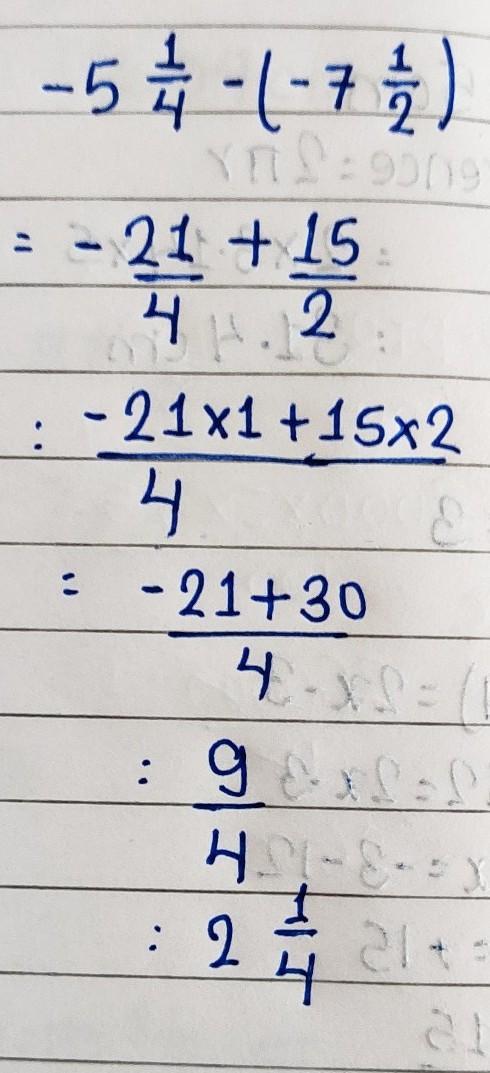 -5 1/4 - (-7 1/2)
= - 21/4 + 15/2
: -21×1+15×2/4
= -21+30/4
: 9/4
: 2 1/4